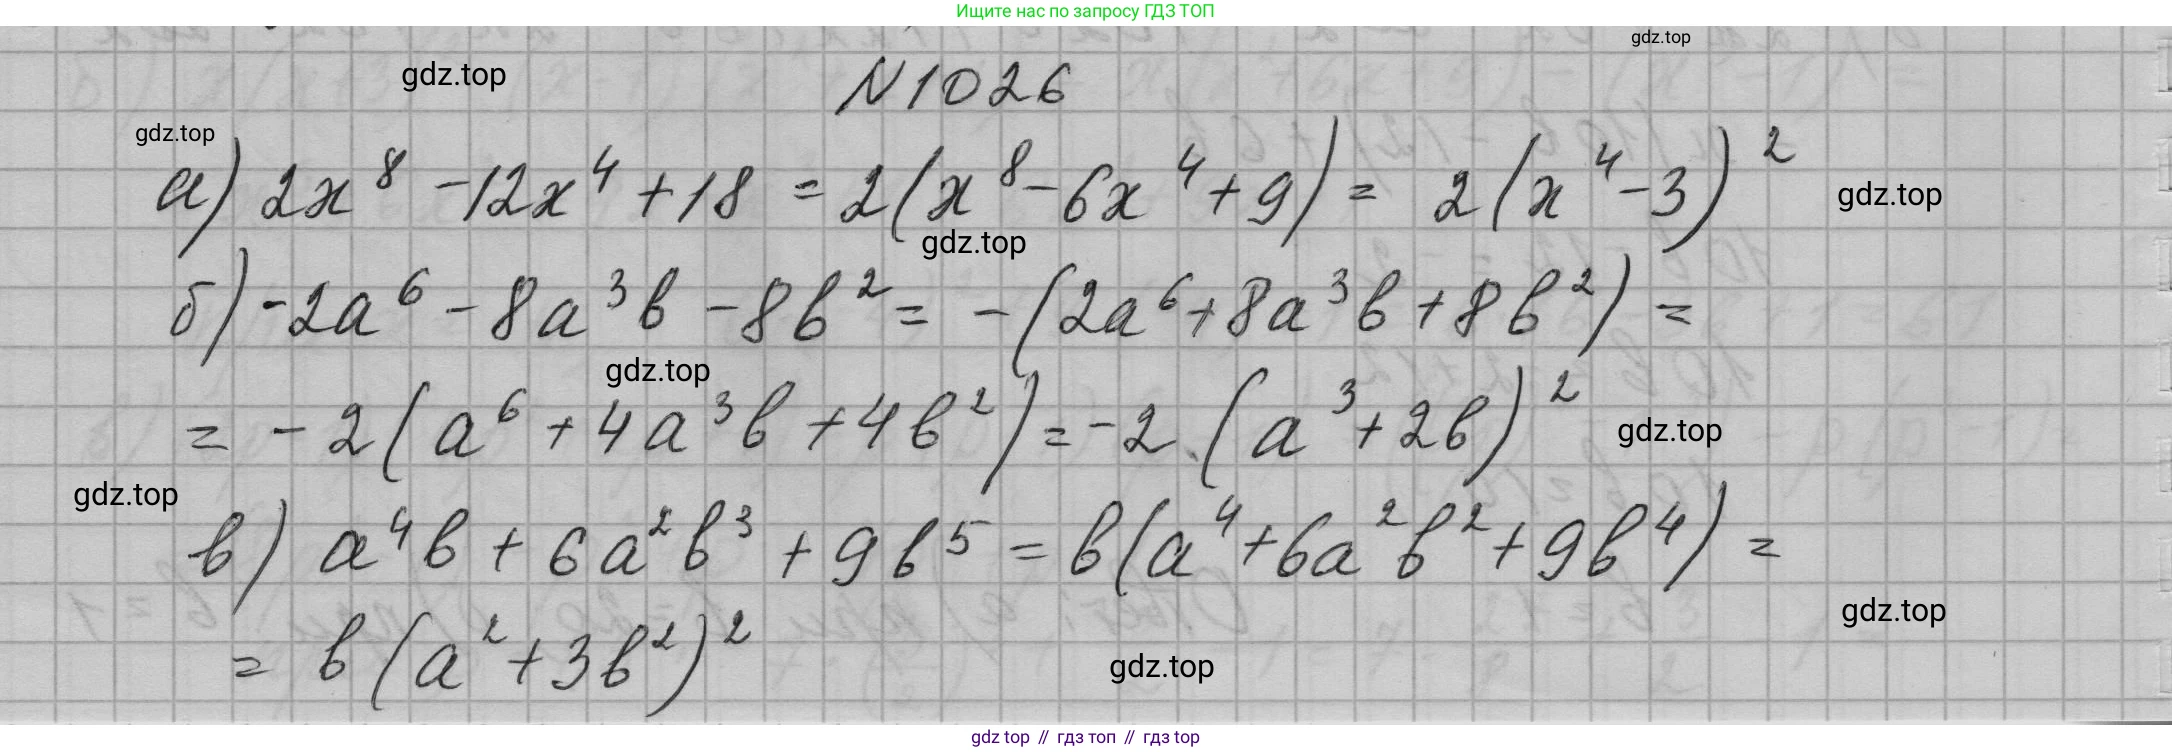 Ищите нас по запросу ГДЗ ТОП
gdz.top
gdz.top
N 1026
gdz.top
а) 2x⁸ - 12x⁴ + 18 = 2(x⁸ - 6x⁴ + 9) = 2(x⁴ - 3)²
gdz.top
gdz.top
б) -2a⁶ - 8a³b - 8b² = -(2a⁶ + 8a³b + 8b²) =
gdz.top
= -2(a⁶ + 4a³b + 4b²) = -2·(a³ + 2b)²
gdz.top
gdz.top
в) a⁴b + 6a²b³ + 9b⁵ = b(a⁴ + 6a²b² + 9b⁴) =
gdz.top
= b(a² + 3b²)²
gdz.top
gdz top // гдз топ // гдз top